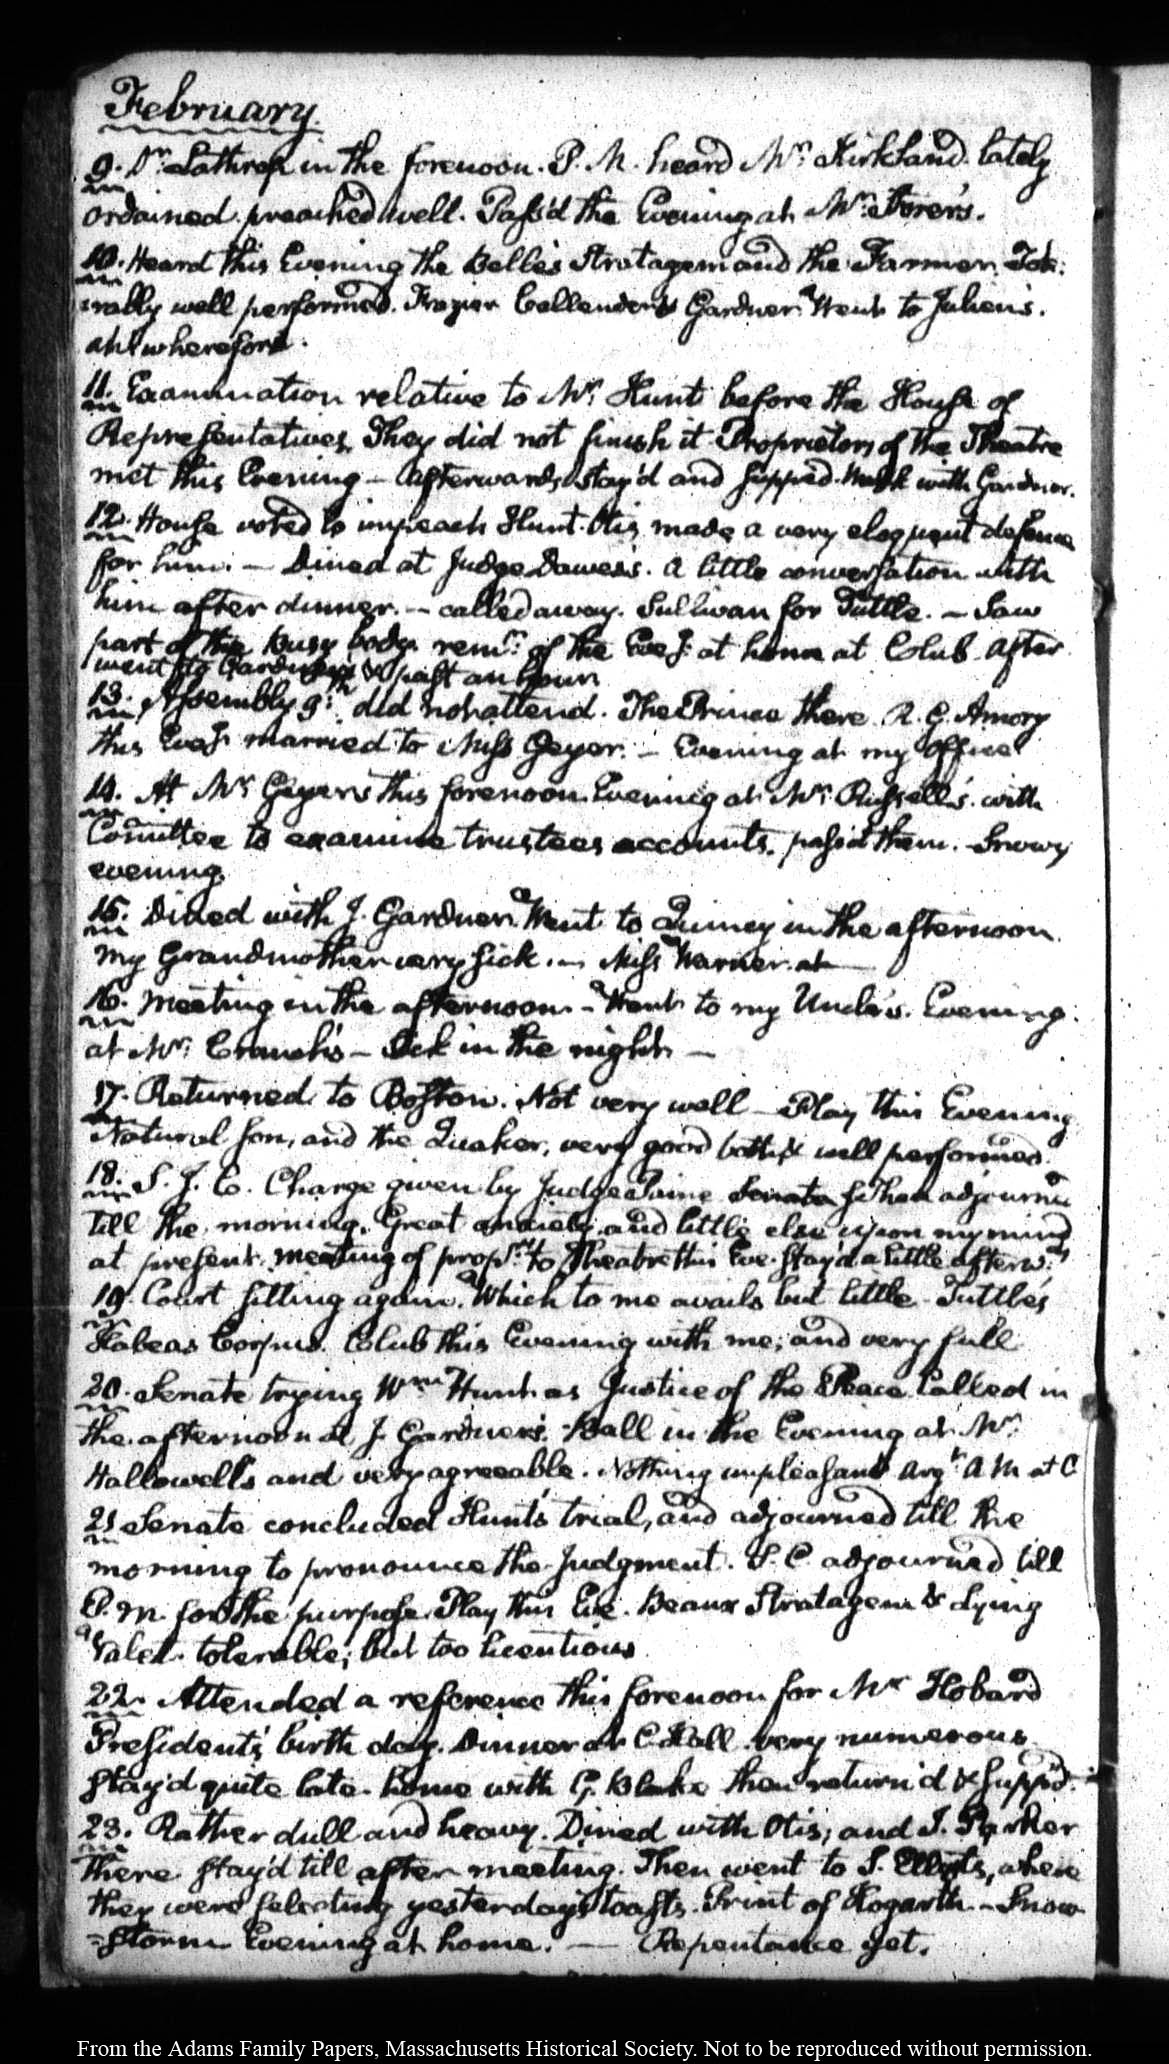 February.
9. Dr. Lathrop in the forenoon. P. M. heard Mr. Kirkland lately
ordained. preached well. Pass'd the Evening at Mr. Storer's.
10. Heard this Evening the Belle's Stratagem and the Farmer. Tole:
:rally well performed. Frazier Callender & Gardner. Went to Julien's.
ah! wherefore.
11. Examination relative to Mr. Hunt before the House of
Representatives. They did not finish it. Proprietors of the Theatre
met this Evening — Afterwards stay'd and supped. Walk with Gardner.
12. House voted to impeach Hunt. Otis made a very eloquent defence
for him. — Dined at Judge Dawes's. A little conversation with
him after dinner. — called away. Sullivan for Tuttle. — Saw
part of the Busy body. remr. of the Eveg. at home at Club. After
went to Gardner's & past an hour
13. Assembly 9th. did not attend. The Prince there. R. G. Amory
this Eveg. married to Miss Geyer. — Evening at my Office
14. At Mr. Geyer's this forenoon. Evening at Mr. Russell's. with
Comittee to examine trustees accounts. pass'd them. — Snowy
evening.
15. Dined with J. Gardner. Went to Quincy in the afternoon.
my Grandmother very sick. — Miss Warner at —
16. Meeting in the afternoon — Went to my Uncle's. Evening.
at Mr. Cranch's — Sick in the night —
17. Returned to Boston. Not very well — Play this Evening
Natural son, and the Quaker, very good both & well performed.
18. S. J. C. Charge given by Judge Paine Senate & then adjourned
till the morning. Great anxiety and little else upon my mind
at present. meeting of propr. to Theatre this Eve. stay'd a little afterwds.
19. Court sitting again. Which to me avails but little. Tuttle's
Habeas Corpus. Club this Evening with me; and very full
20. Senate trying Wm. Hunt as Justice of the Peace. Called in
the afternoon at J. Gardner's. Ball in the Evening at Mr.
Hallowell's and very agreeable. Nothing unpleasant. Argt. A M at C
21 Senate concluded Hunt's trial, and adjourned till the
morning to pronounce the Judgment. S. C. adjourned till
P. M. for the purpose. Play this Eve. Beaux Stratagem & dying
Valet. tolerable; but too licentious
22. Attended a reference this forenoon for Mr. Hobard
President's birth day. Dinner at C. Hall very numerous
stay'd quite late. home with G. Blake then return'd & supp'd.
23. Rather dull and heavy. Dined with Otis; and I. Parker
there. stay'd till after meeting. Then went to S. Elliot's, where
they were selecting yesterday's toasts. Print of Hogarth. — Snow
=storm. Evening at home. — Repentance yet.
From the Adams Family Papers, Massachusetts Historical Society. Not to be reproduced without permission.